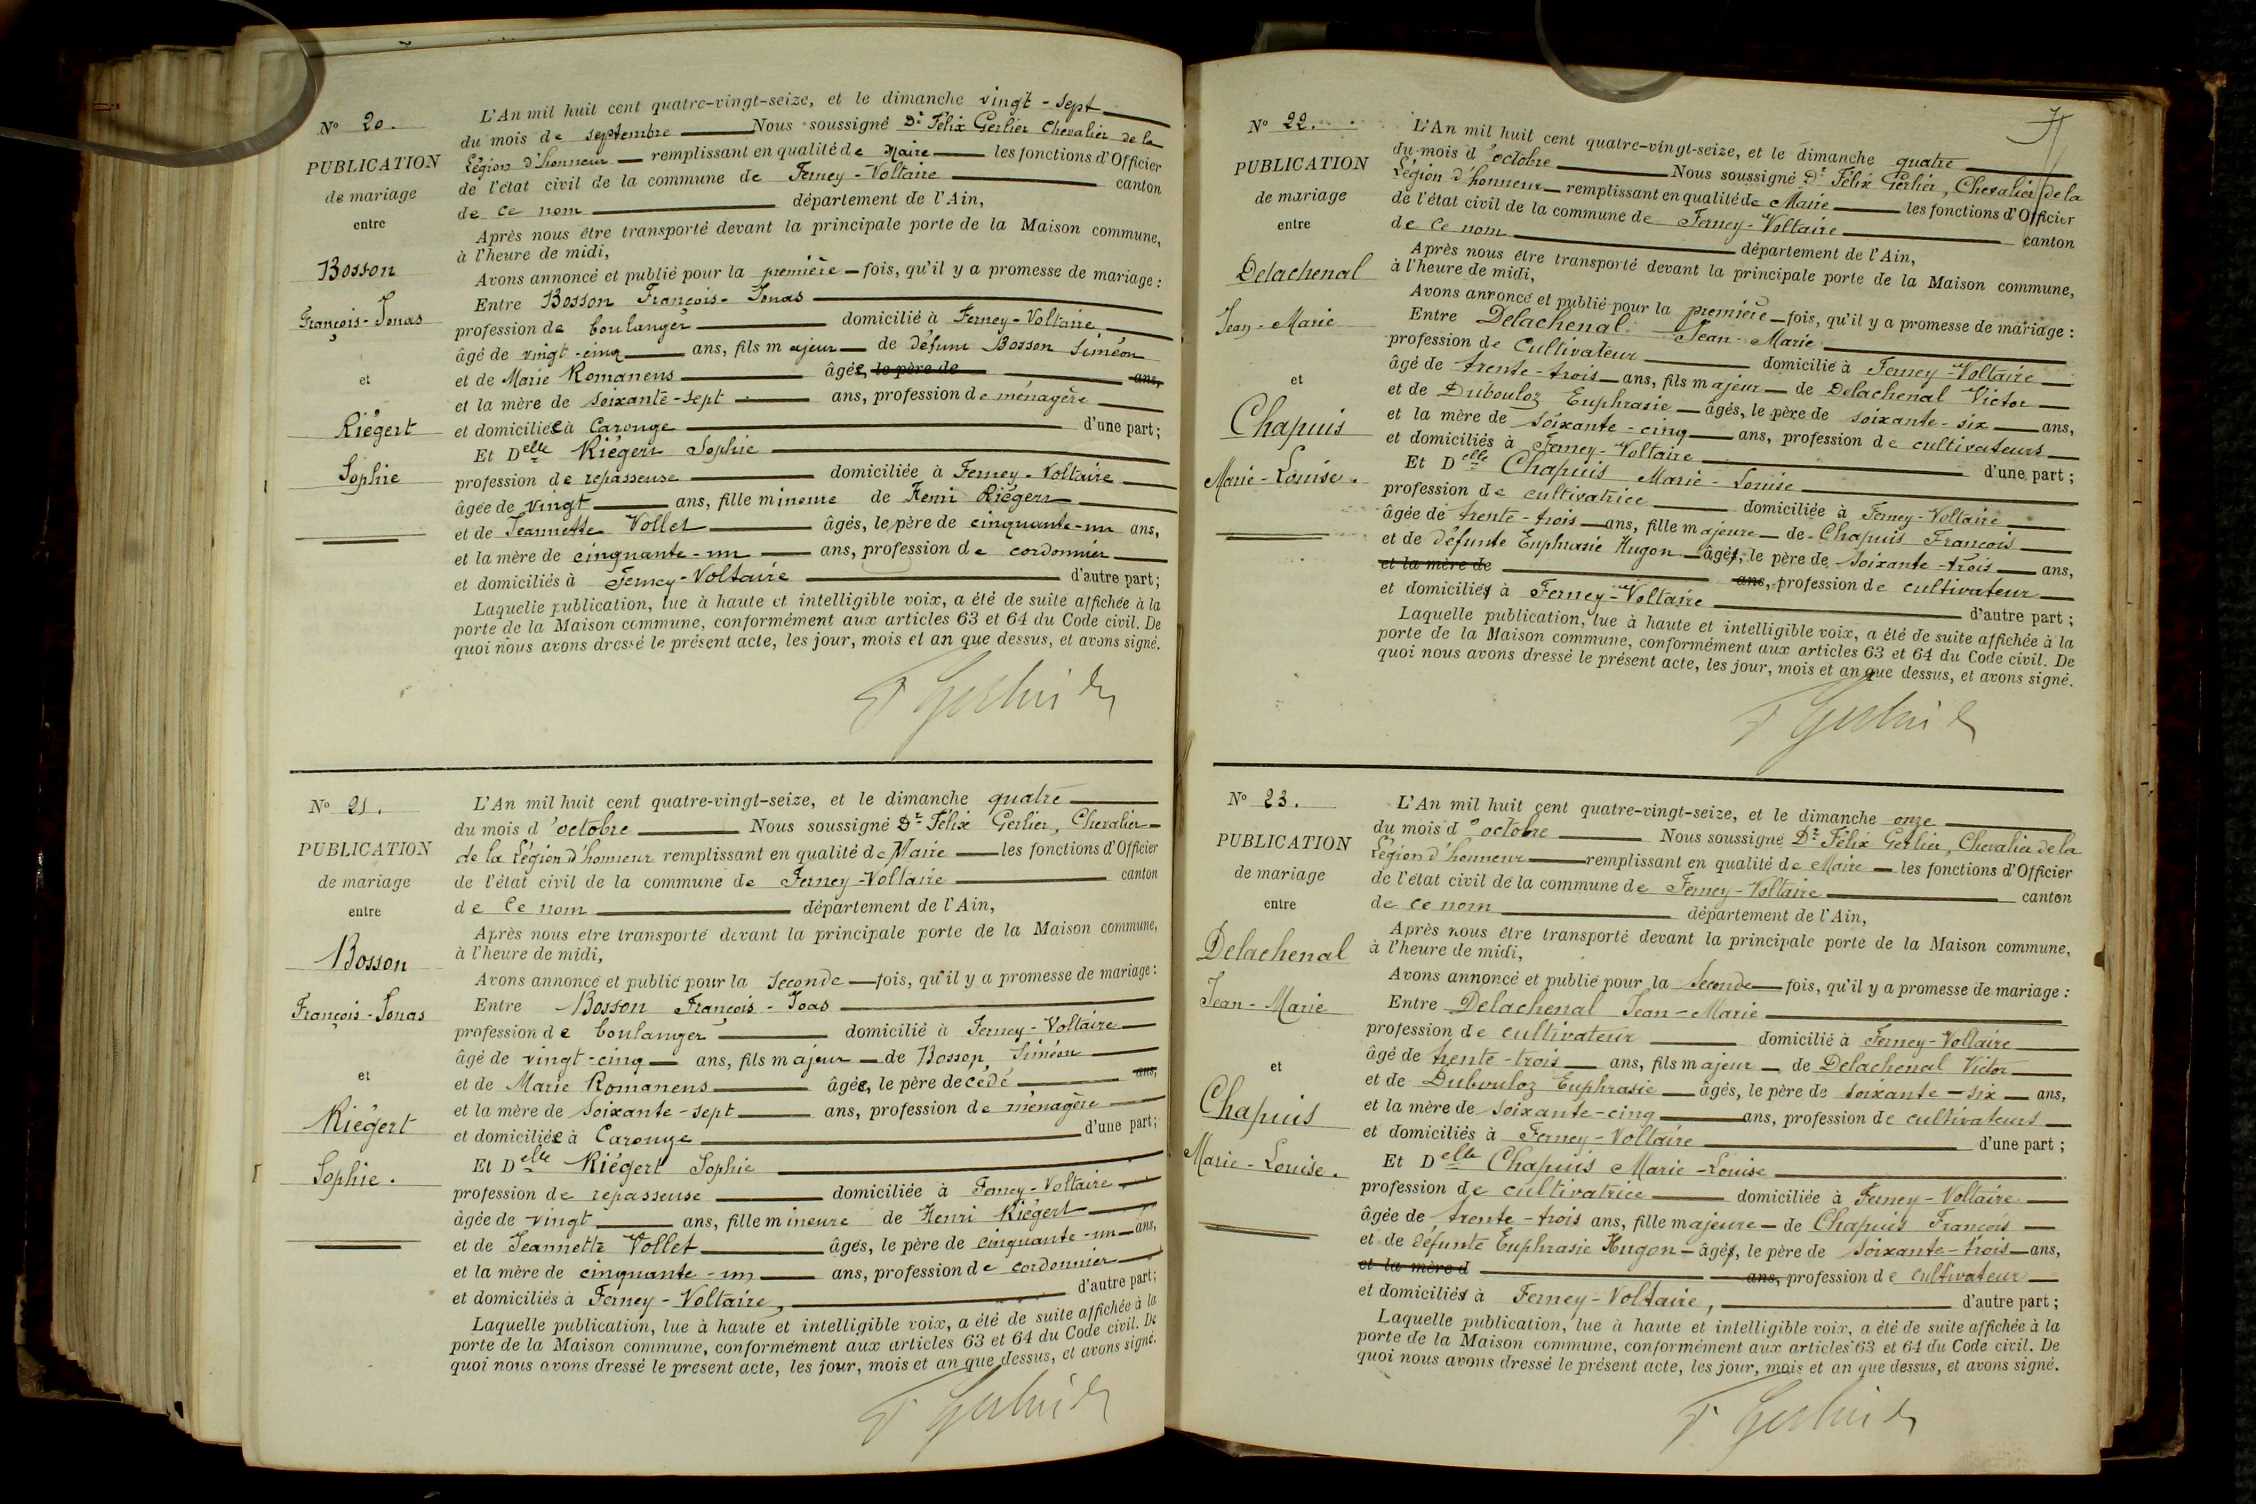 N° 20.
PUBLICATION
de mariage
entre
Bosson
François-Jonas
et
Riégert
Sophie
L'An mil huit cent quatre-vingt-seize, et le dimanche vingt-sept
du mois de septembre Nous soussigné Dr Félix Gerlier Chevalier de la
Légion d'honneur remplissant en qualité de Maire les fonctions d'Officier
de l'état civil de la commune de Ferney-Voltaire canton
de ce nom département de l'Ain,
Après nous être transporté devant la principale porte de la Maison commune,
à l'heure de midi,
Avons annoncé et publié pour la première fois, qu'il y a promesse de mariage :
Entre Bosson François-Jonas
profession de boulanger domicilié à Ferney-Voltaire
âgé de vingt-cinq ans, fils majeur de défunt Bosson Siméon
et de Marie Romanens âgée, le père de ans,
et la mère de soixante-sept ans, profession de ménagère
et domiciliée à Carouge d'une part ;
Et Delle Riégert Sophie
profession de repasseuse domiciliée à Ferney-Voltaire
âgée de vingt ans, fille mineure de Henri Riégert
et de Jeannette Vollet âgés, le père de cinquante-un ans,
et la mère de cinquante-un ans, profession de cordonnier
et domiciliés à Ferney-Voltaire d'autre part ;
Laquelle publication, lue à haute et intelligible voix, a été de suite affichée à la
porte de la Maison commune, conformément aux articles 63 et 64 du Code civil. De
quoi nous avons dressé le présent acte, les jour, mois et an que dessus, et avons signé.
F Gerlier Dr
N° 21.
PUBLICATION
de mariage
entre
Bosson
François-Jonas
et
Riégert
Sophie.
L'An mil huit cent quatre-vingt-seize, et le dimanche quatre
du mois d'octobre Nous soussigné Dr Félix Gerlier, Chevalier
de la Légion d'honneur remplissant en qualité de Maire les fonctions d'Officier
de l'état civil de la commune de Ferney-Voltaire canton
de ce nom département de l'Ain,
Après nous être transporté devant la principale porte de la Maison commune,
à l'heure de midi,
Avons annoncé et publié pour la seconde fois, qu'il y a promesse de mariage :
Entre Bosson François-Joas
profession de boulanger domicilié à Ferney-Voltaire
âgé de vingt-cinq ans, fils majeur de Bosson Siméon
et de Marie Romanens âgée, le père décédé ans,
et la mère de soixante-sept ans, profession de ménagère
et domiciliée à Carouge d'une part ;
Et Delle Riégert Sophie
profession de repasseuse domiciliée à Ferney-Voltaire
âgée de vingt ans, fille mineure de Henri Riégert
et de Jeannette Vollet âgés, le père de cinquante-un ans,
et la mère de cinquante-un ans, profession de cordonnier
et domiciliés à Ferney-Voltaire, d'autre part ;
Laquelle publication, lue à haute et intelligible voix, a été de suite affichée à la
porte de la Maison commune, conformément aux articles 63 et 64 du Code civil. De
quoi nous avons dressé le présent acte, les jour, mois et an que dessus, et avons signé.
F Gerlier Dr
N° 22.
PUBLICATION
de mariage
entre
Delachenal
Jean-Marie
et
Chapuis
Marie-Louise.
L'An mil huit cent quatre-vingt-seize, et le dimanche quatre
du mois d'octobre Nous soussigné Dr Félix Gerlier, Chevalier de la
Légion d'honneur remplissant en qualité de Maire les fonctions d'Officier
de l'état civil de la commune de Ferney-Voltaire canton
de ce nom département de l'Ain,
Après nous être transporté devant la principale porte de la Maison commune,
à l'heure de midi,
Avons annoncé et publié pour la première fois, qu'il y a promesse de mariage :
Entre Delachenal Jean-Marie
profession de Cultivateur domicilié à Ferney-Voltaire
âgé de trente-trois ans, fils majeur de Delachenal Victor
et de Dubouloz Euphrasie âgés, le père de soixante-six ans,
et la mère de soixante-cinq ans, profession de cultivateurs
et domiciliés à Ferney-Voltaire d'une part ;
Et Delle Chapuis Marie-Louise
profession de cultivatrice domiciliée à Ferney-Voltaire
âgée de trente-trois ans, fille majeure de Chapuis François
et de défunte Euphrasie Hugon âgés, le père de soixante-trois ans,
et la mère de ans, profession de cultivateur
et domiciliés à Ferney-Voltaire d'autre part ;
Laquelle publication, lue à haute et intelligible voix, a été de suite affichée à la
porte de la Maison commune, conformément aux articles 63 et 64 du Code civil. De
quoi nous avons dressé le présent acte, les jour, mois et an que dessus, et avons signé.
F Gerlier Dr
N° 23.
PUBLICATION
de mariage
entre
Delachenal
Jean-Marie
et
Chapuis
Marie-Louise.
L'An mil huit cent quatre-vingt-seize, et le dimanche onze
du mois d'octobre Nous soussigné Dr Félix Gerlier, Chevalier de la
Légion d'honneur remplissant en qualité de Maire les fonctions d'Officier
de l'état civil de la commune de Ferney-Voltaire canton
de ce nom département de l'Ain,
Après nous être transporté devant la principale porte de la Maison commune,
à l'heure de midi,
Avons annoncé et publié pour la seconde fois, qu'il y a promesse de mariage :
Entre Delachenal Jean-Marie
profession de cultivateur domicilié à Ferney-Voltaire
âgé de trente-trois ans, fils majeur de Delachenal Victor
et de Dubouloz Euphrasie âgés, le père de soixante-six ans,
et la mère de soixante-cinq ans, profession de cultivateurs
et domiciliés à Ferney-Voltaire d'une part ;
Et Delle Chapuis Marie-Louise
profession de cultivatrice domiciliée à Ferney-Voltaire
âgée de trente-trois ans, fille majeure de Chapuis François
et de défunte Euphrasie Hugon âgés, le père de soixante-trois ans,
et la mère d ans, profession de cultivateur
et domiciliés à Ferney-Voltaire, d'autre part ;
Laquelle publication, lue à haute et intelligible voix, a été de suite affichée à la
porte de la Maison commune, conformément aux articles 63 et 64 du Code civil. De
quoi nous avons dressé le présent acte, les jour, mois et an que dessus, et avons signé.
F Gerlier Dr